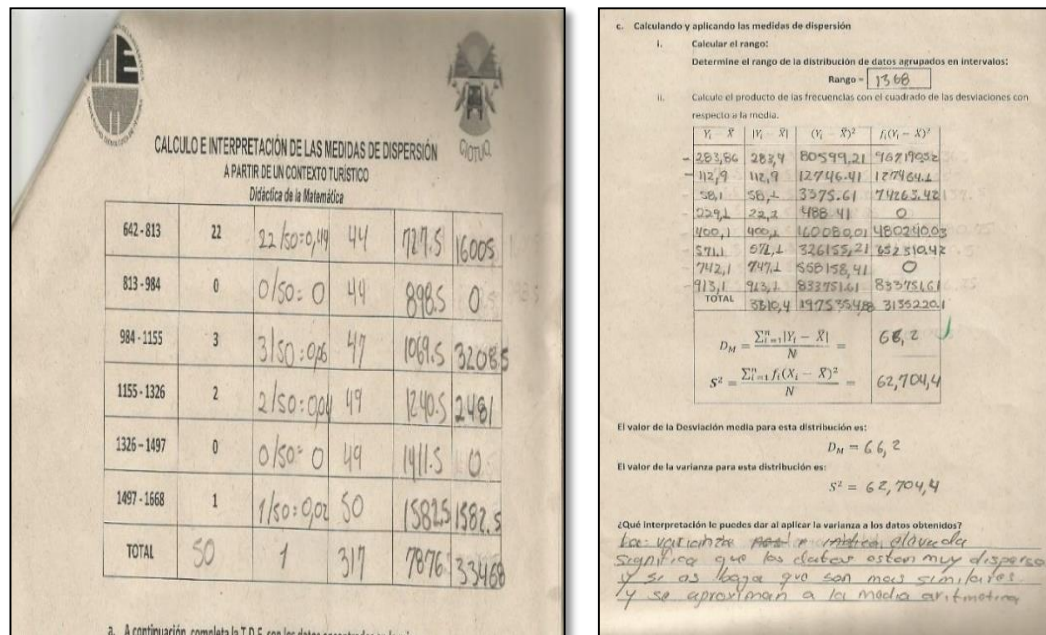 CALCULO E INTERPRETACIÓN DE LAS MEDIDAS DE DISPERSIÓN
A PARTIR DE UN CONTEXTO TURÍSTICO
Didáctica de la Matemática
642 - 813 22 22/50=0,44 44 727.5 16005
813 - 984 0 0/50= 0 44 898.5 0
984 - 1155 3 3/50=0,06 47 1069.5 3208.5
1155 - 1326 2 2/50=0,04 49 1240.5 2481
1326 – 1497 0 0/50= 0 49 1411.5 0
1497 - 1668 1 1/50=0,02 50 1582.5 1582.5
TOTAL 50 1 317 7876 33468
a. A continuación, completa la T.D.F. con los datos
c. Calculando y aplicando las medidas de dispersión
i. Calcular el rango:
Determine el rango de la distribución de datos agrupados en intervalos:
Rango = 1368
ii. Calcule el producto de las frecuencias con el cuadrado de las desviaciones con
respecto a la media.
Yᵢ - X̄ |Yᵢ - X̄| (Yᵢ - X̄)² fᵢ(Yᵢ - X̄)²
- 283,86 283,4 80599,21
- 112,9 112,9 12746.41 127464.1
58,1 58,1 3375.61 74263.42
229,1 0
400,1 400,1 160080,01 480240,03
571,1 571,1 326155,21 652310.42
742,1 0
913,1 913,1 833751.61 833751,61
TOTAL 3310,4 3135220.1
D_M = Σⁿᵢ₌₁|Yᵢ - X̄| / N = 66,2
S² = Σⁿᵢ₌₁ fᵢ(Xᵢ - X̄)² / N = 62,704,4
El valor de la Desviación media para esta distribución es:
D_M = 66,2
El valor de la varianza para esta distribución es:
S² = 62,704,4
¿Qué interpretación le puedes dar al aplicar la varianza a los datos obtenidos?
La varianza elevada
significa que los datos estan muy disperso
y si es baja que son mas similares
y se aproximan a la media aritmetica